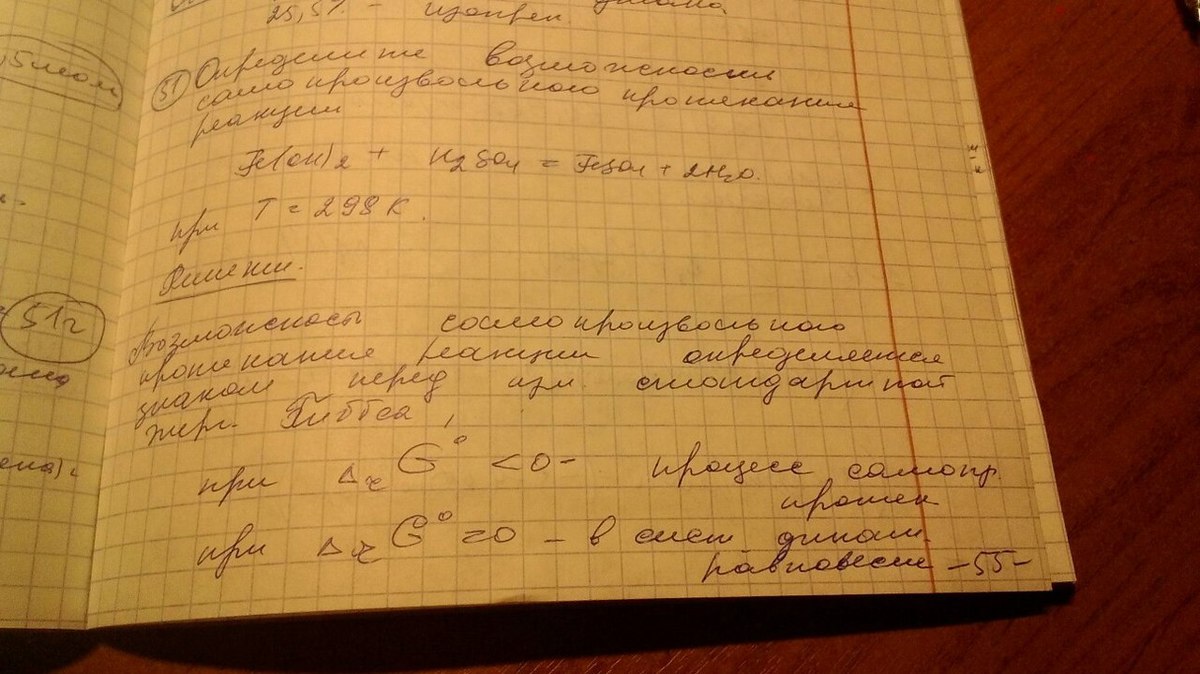 25,5% - изопрен
51 Определите возможность
самопроизвольного протекания
реакции
Fe(OH)2 + H2SO4 = FeSO4 + 2H2O.
при T = 298 K.
Решение.
Возможность самопроизвольного
протекание реакции определяется
знаком перед изм. стандартной
энерг. Гиббса,
при ΔrG° <0 - процесс самопр.
протек
при ΔrG° =0 - в сист динам.
равновесие -55-
51г